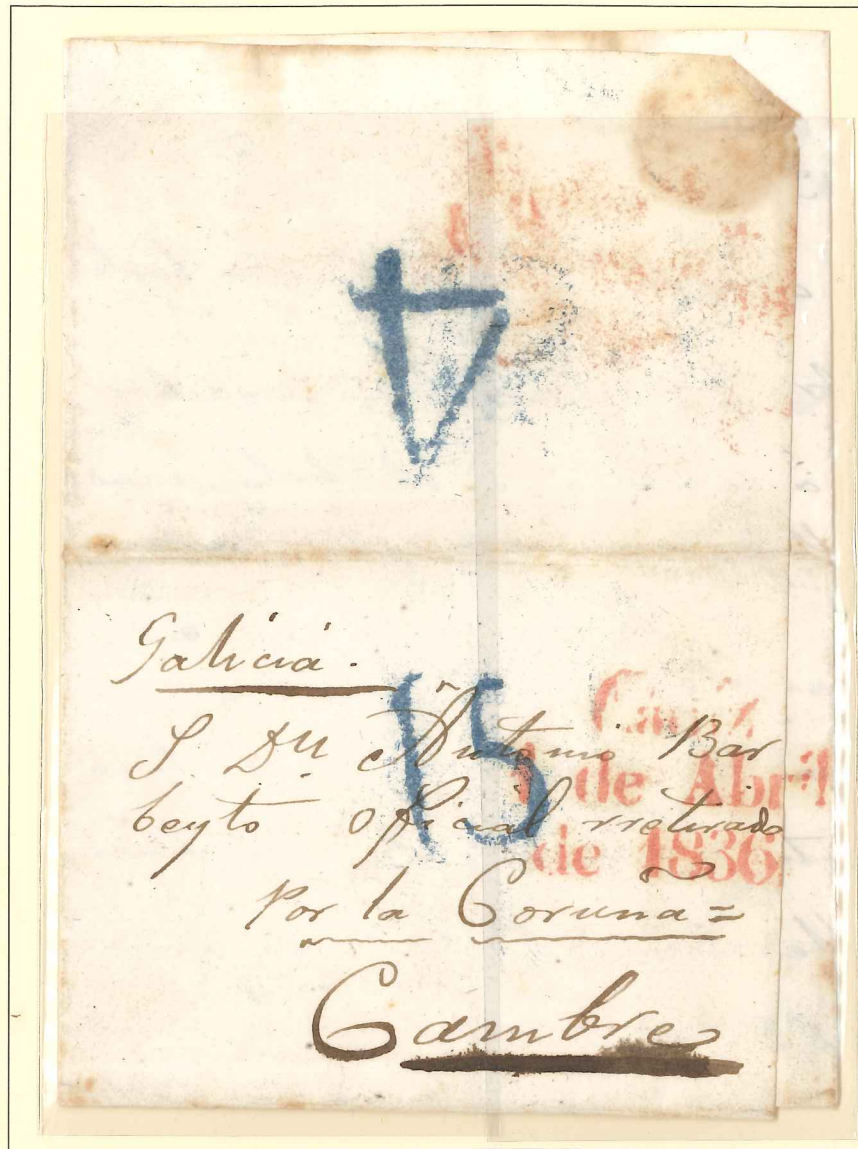 4
Galicia.
15
Cadiz
1 de Abril
de 1836
S Dn Antonio Bar
beyto oficial rretirado
Por la Coruña =
Cambre